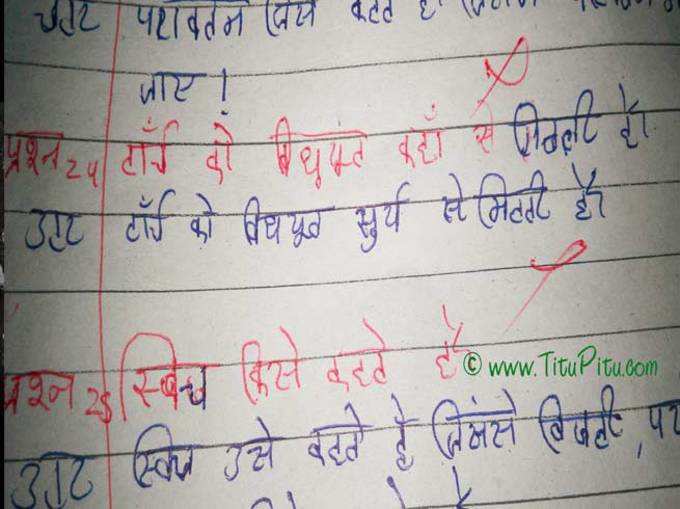 उत्तर परावर्तन जिसे कहते है
जाए ।
प्रश्न 24 टॉर्च को विधुयुत कहाँ से मिलती है।
उत्तर टॉर्च को विधयुत सुर्य से मिलती है।
प्रश्न 25 स्विच किसे कहते है
© www.TituPitu.com
उत्तर स्विच उसे कहते है जिससे बिजली,